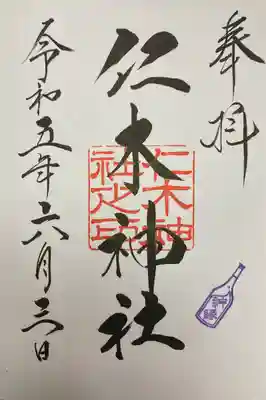 奉拝
仁木神社
仁木神社之印
令和五年六月三日